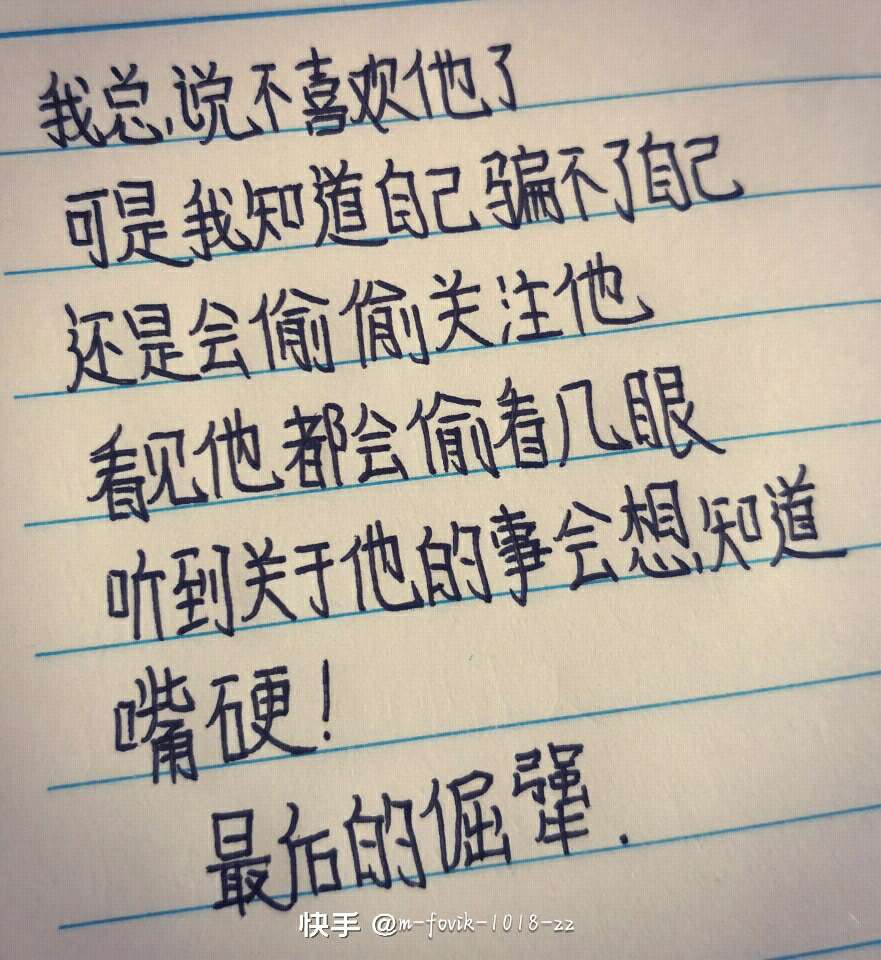 我总说不喜欢他了
可是我知道自己骗不了自己
还是会偷偷关注他
看见他都会偷看几眼
听到关于他的事会想知道
嘴硬!
最后的倔犟.
快手 @m-fovik-1018-zz